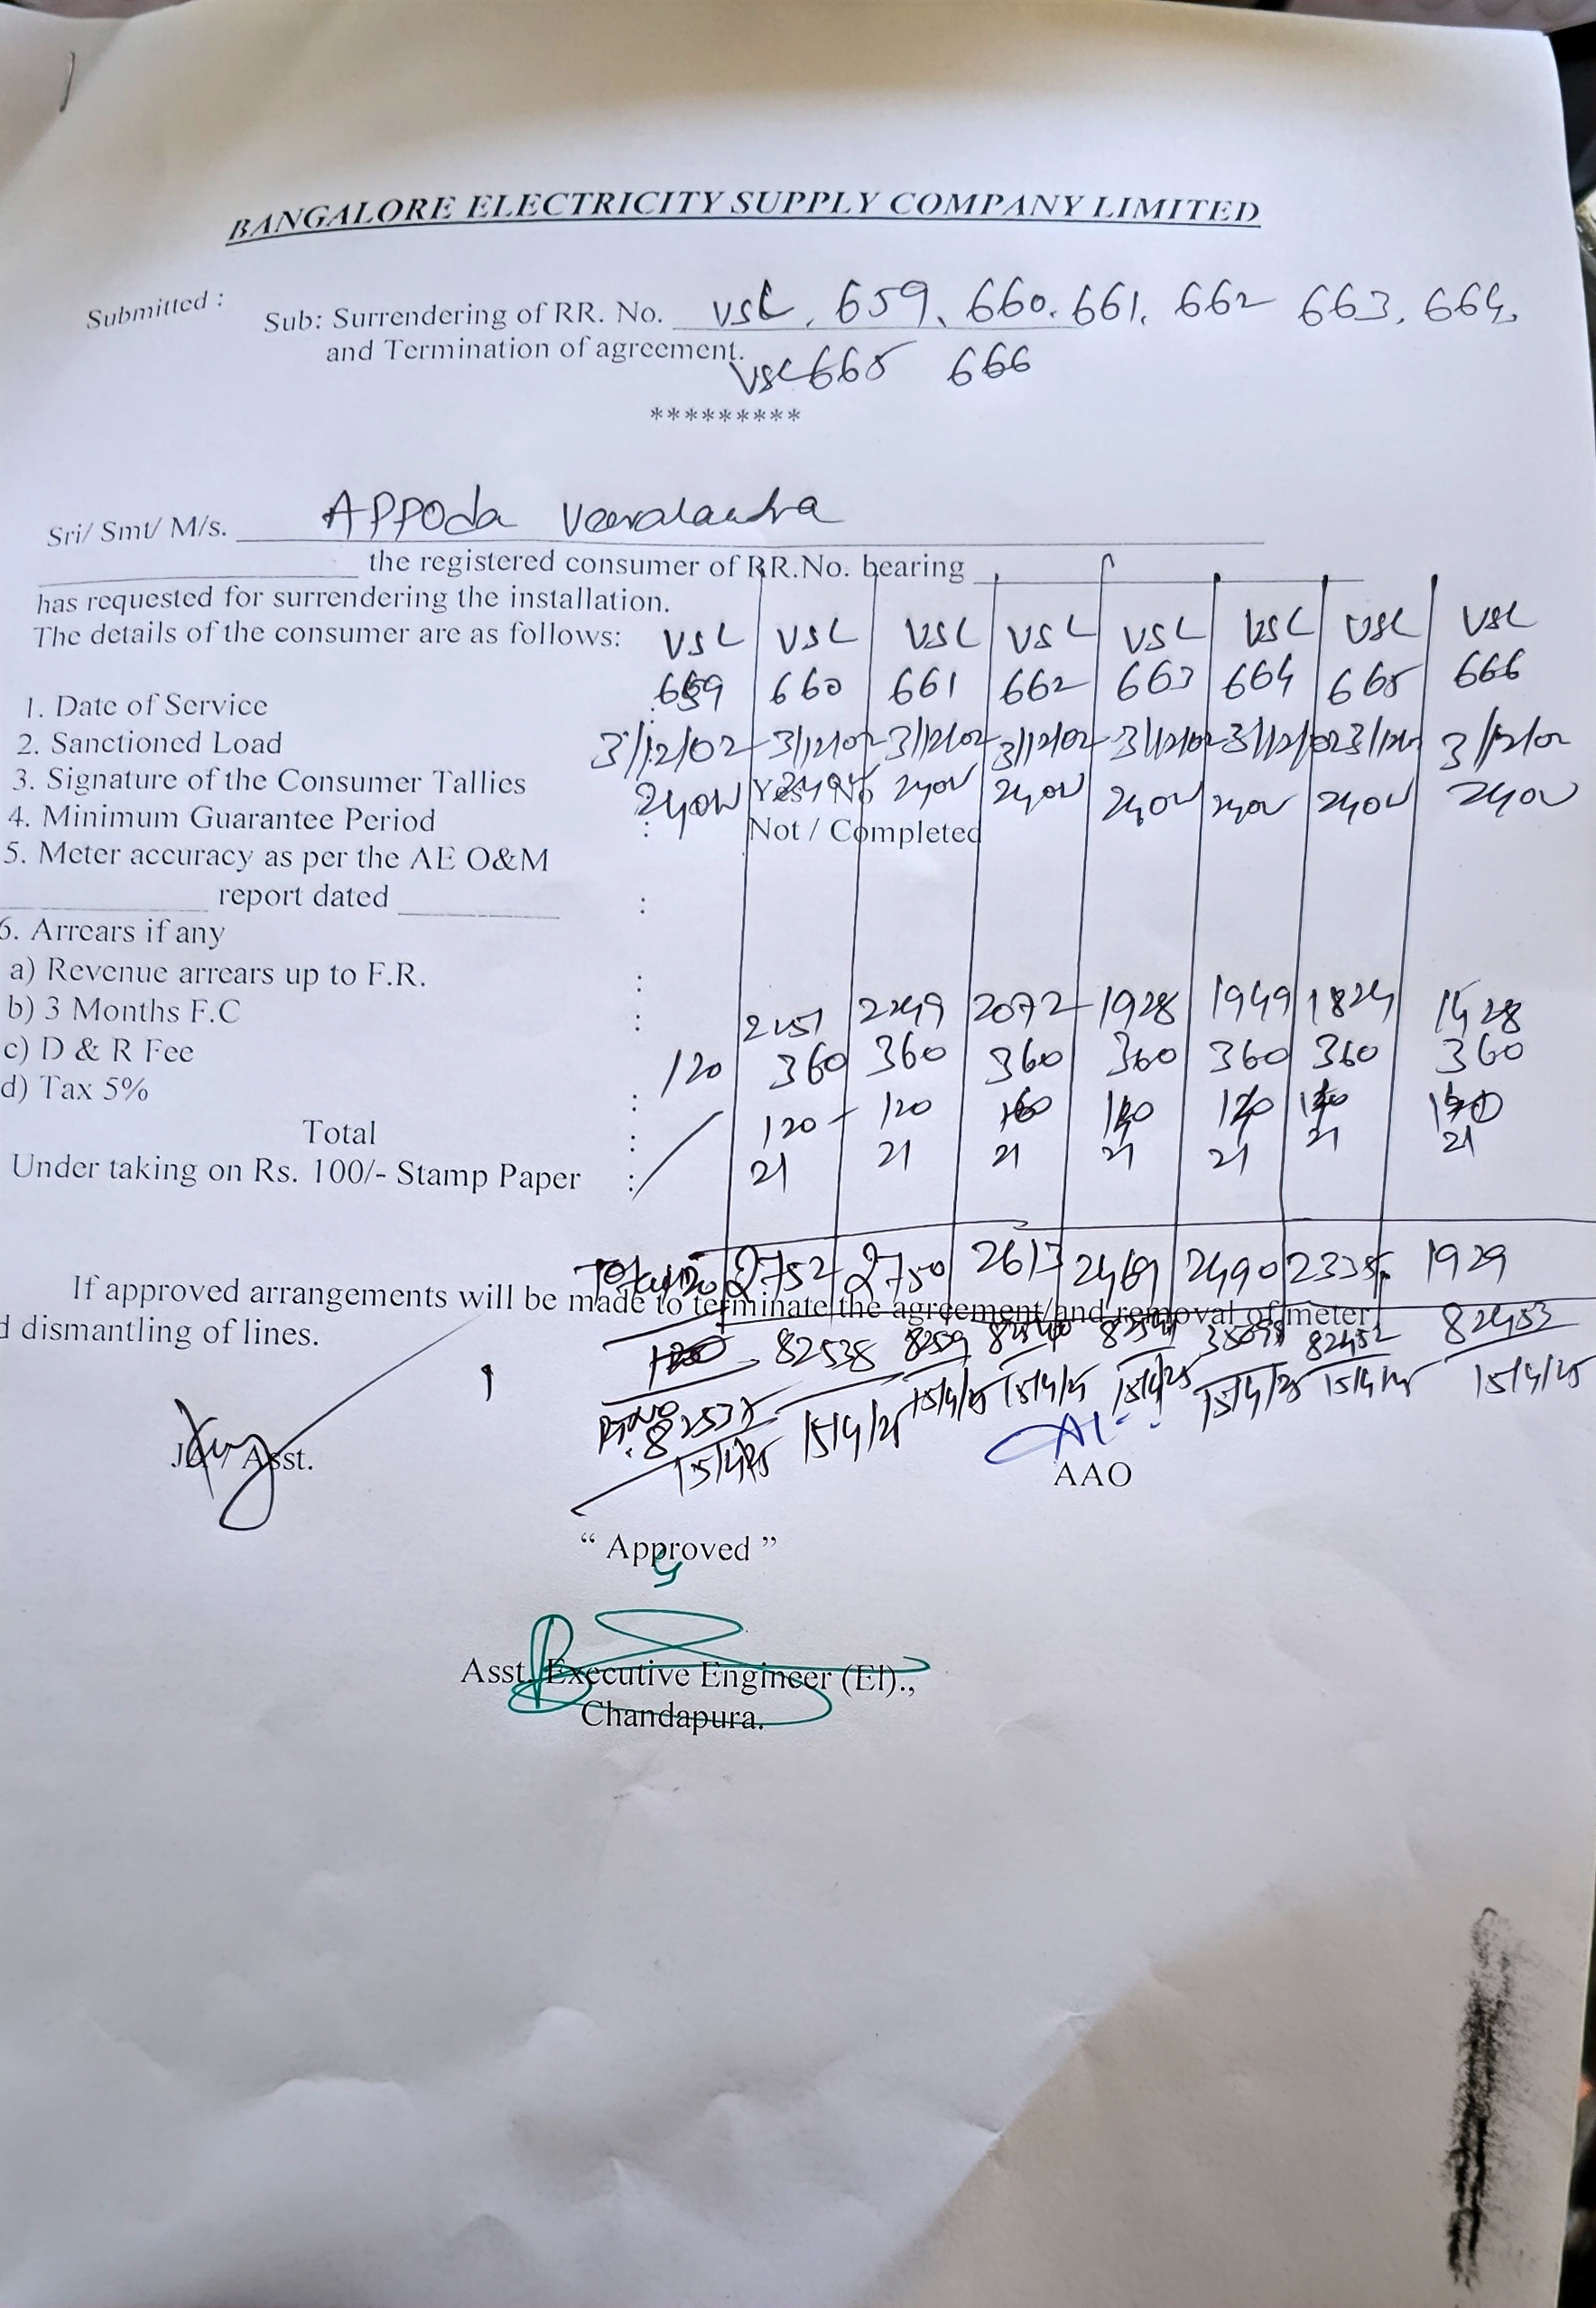 BANGALORE ELECTRICITY SUPPLY COMPANY LIMITED
Submitted :
Sub: Surrendering of RR. No. VSL, 659, 660, 661, 662 663, 664,
and Termination of agreement. VSL 665 666
*********
Sri/ Smt/ M/s. APPoda
the registered consumer of RR.No. bearing
has requested for surrendering the installation.
The details of the consumer are as follows: VSL VSL VSL VSL VSL VSL VSL VSL
659 660 661 662 663 664 665 666
1. Date of Service :
2. Sanctioned Load 3/12/02 3/12/02 3/12/02 3/12/02 3/12/02 3/12/02 3/12/02 3/12/02
3. Signature of the Consumer Tallies : Yes / No
240W 240W 240W 240W 240W 240W 240W
4. Minimum Guarantee Period : Not / Completed
5. Meter accuracy as per the AE O&M
report dated :
6. Arrears if any
a) Revenue arrears up to F.R. :
b) 3 Months F.C : 2251 2249 2072 1928 1949 1824 1428
c) D & R Fee 120 360 360 360 360 360 360 360
d) Tax 5% : 120 120 120 120 120
Total : 21 21 21 21 21 21 21
Under taking on Rs. 100/- Stamp Paper :
Total 2752 2750 2613 2469 2490 2335 1929
If approved arrangements will be made to terminate the agreement/and removal of meter
d dismantling of lines.
82538 82452 82453
15/4/25 15/4/25 15/4/25 15/4/25 15/4/25 15/4/25 15/4/25
15/4/25
Asst.
AAO
“ Approved ”
Asst. Executive Engineer (El).,
Chandapura.